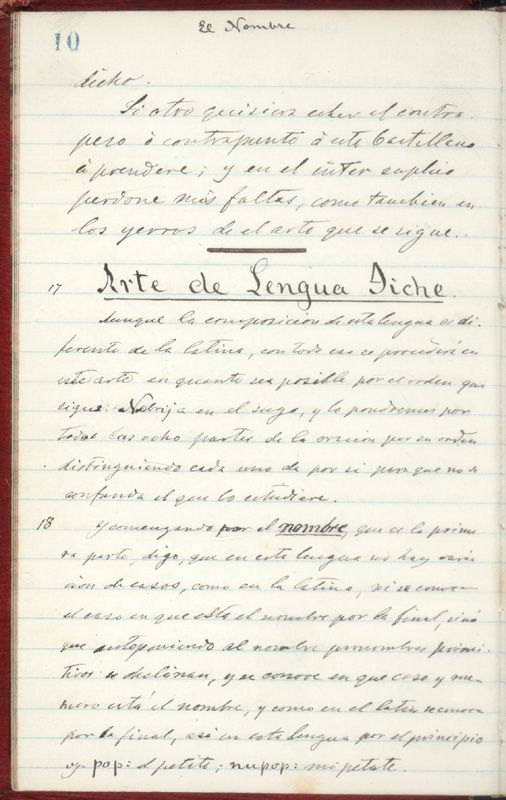 El Nombre
10
dicho.
Si otro quisiere echar el contra-
peso ó contrapunto á este Castellano
á prendere; y en el inter suplico
perdone mis faltas, como tambien en
los yerros de el arte que se sigue.
17 Arte de Lengua Qiche.
Aunque la composicion de esta lengua es di-
ferente de la latina, con todo eso se procederá en
este arte en quanto sea posible por el orden que
sigue Nebrija en el suyo, y lo pondremos por
todas las ocho partes de la oracion por su orden
distinguiendo cada uno de por si para que no se
confunda el que lo estudiare.
18 Y comenzando por el nombre, que es la prime-
ra parte, digo, que en esta lengua no hay varia-
cion de casos, como en la latina, ni se conoce
el caso en que esta el nombre por la final, sinó
que anteponiendo al nombre pronombres primi-
tivos se declinan, y se conoce en que caso y nu-
mero está el nombre, y como en el latin se conoce
por la final, asi en esta lengua por el principio
vg. pop: el petate; nupop: mi petate.